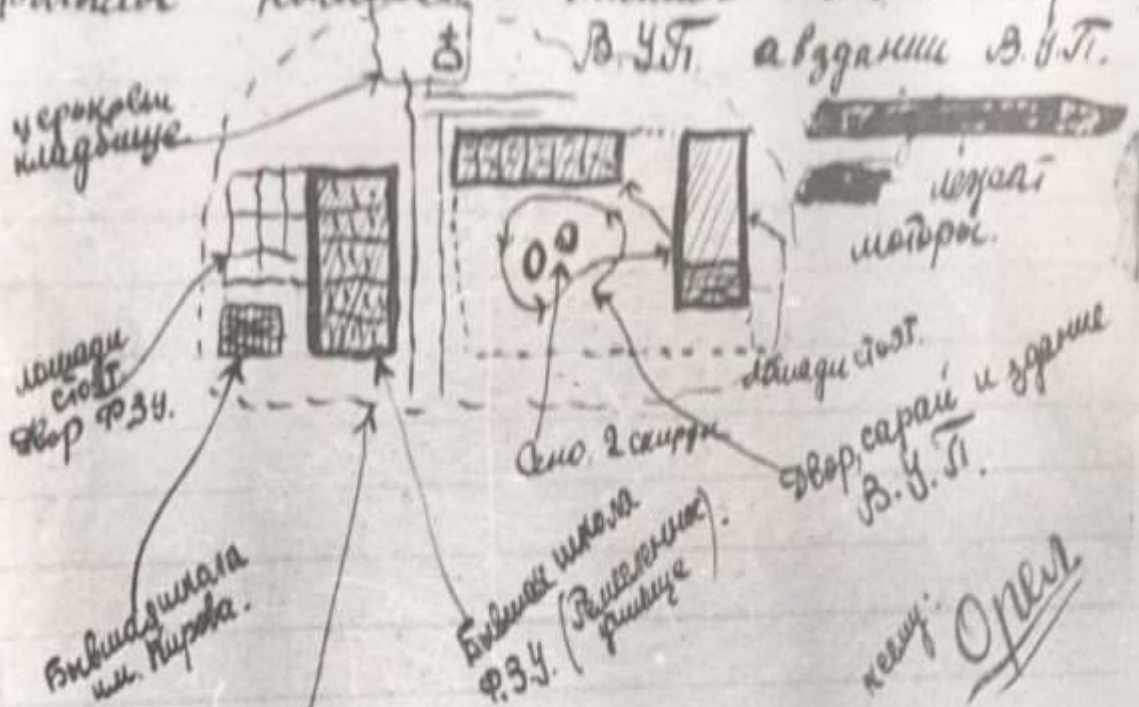 В.У.П. а в здании В.У.П.
лежат
моторы.
церковь
кладбище
лошади
стоят
Двор Ф.З.У.
лошади стоят.
Сено. 2 скирды
Двор, сарай и здание
В.У.П.
Бывшая школа
им. Кирова.
Бывшая школа
Ф.З.У. (Ремесленное
училище).
Орел